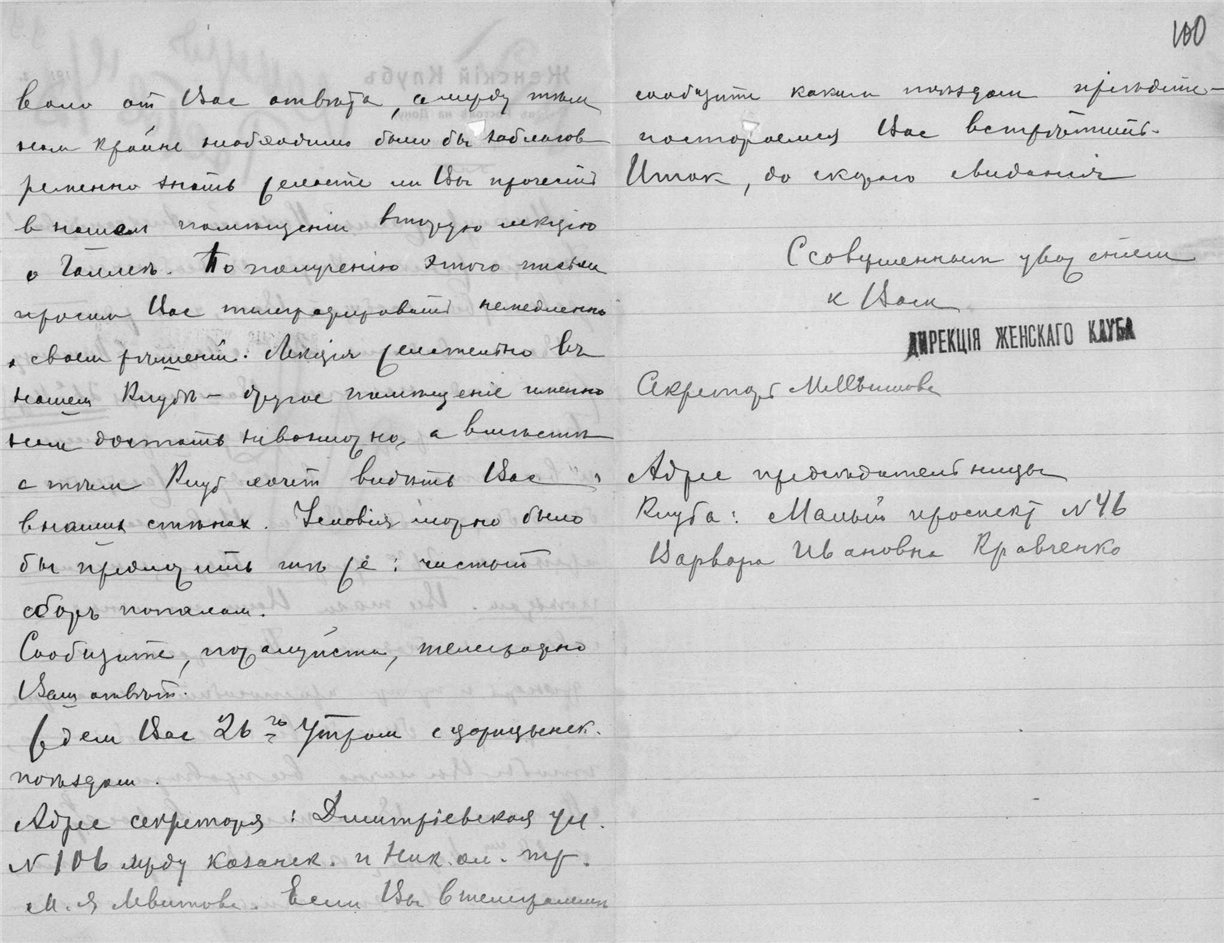 вало от Вас ответа, а между тем
нам крайне необходимо было бы заблагов
ременно знать желаете ли Вы прочесть
в нашем помещении вторую лекцию
о Галлеѣ. По получению этого письма
просим Вас телеграфировать немедленно
о своем решеніи. Лекція желательно въ
нашем Клубѣ – другое помѣщеніе именно
нам достать невозможно, а вместѣ
с тѣм Клуб хочет видѣть Вас
в наших стѣнах. Условія можно было
бы предложить тѣ же: чистый
сборъ пополам.
Сообщите, пожалуйста, телеграфно
Ваш отвѣт.
Ждем Вас 26го утром с царицынск.
поѣздом.
Адрес секретаря: Дмитріевская ул.
N 106 между Казанск. и Ник.ол. пр.
М. Я. Если Вы в телеграмме
100
сообщите каким поѣздом пріѣдете –
постараемся Вас встрѣтить.
Итак, до скораго свиданія
С совершенным уваженіем
к Вам
ДИРЕКЦІЯ ЖЕНСКАГО КЛУБА
Секретарь
Адрес предсѣдательницы
Клуба: Малый проспект N 46
Варвара Ивановна Кравченко
Женскій Клубъ
въ Ростовѣ на Дону